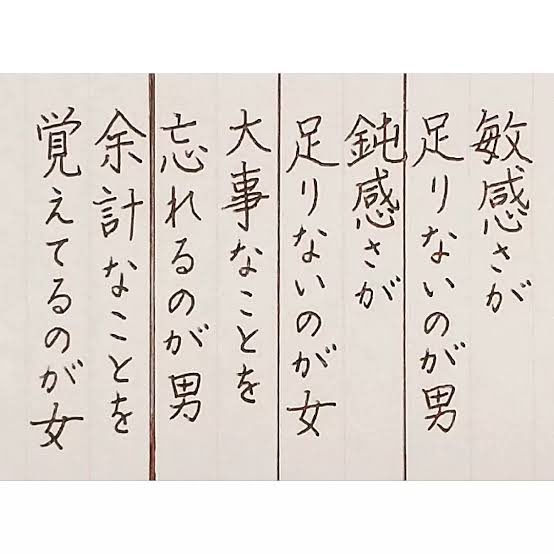 敏感さが
足りないのが男
鈍感さが
足りないのが女
大事なことを
忘れるのが男
余計なことを
覚えてるのが女